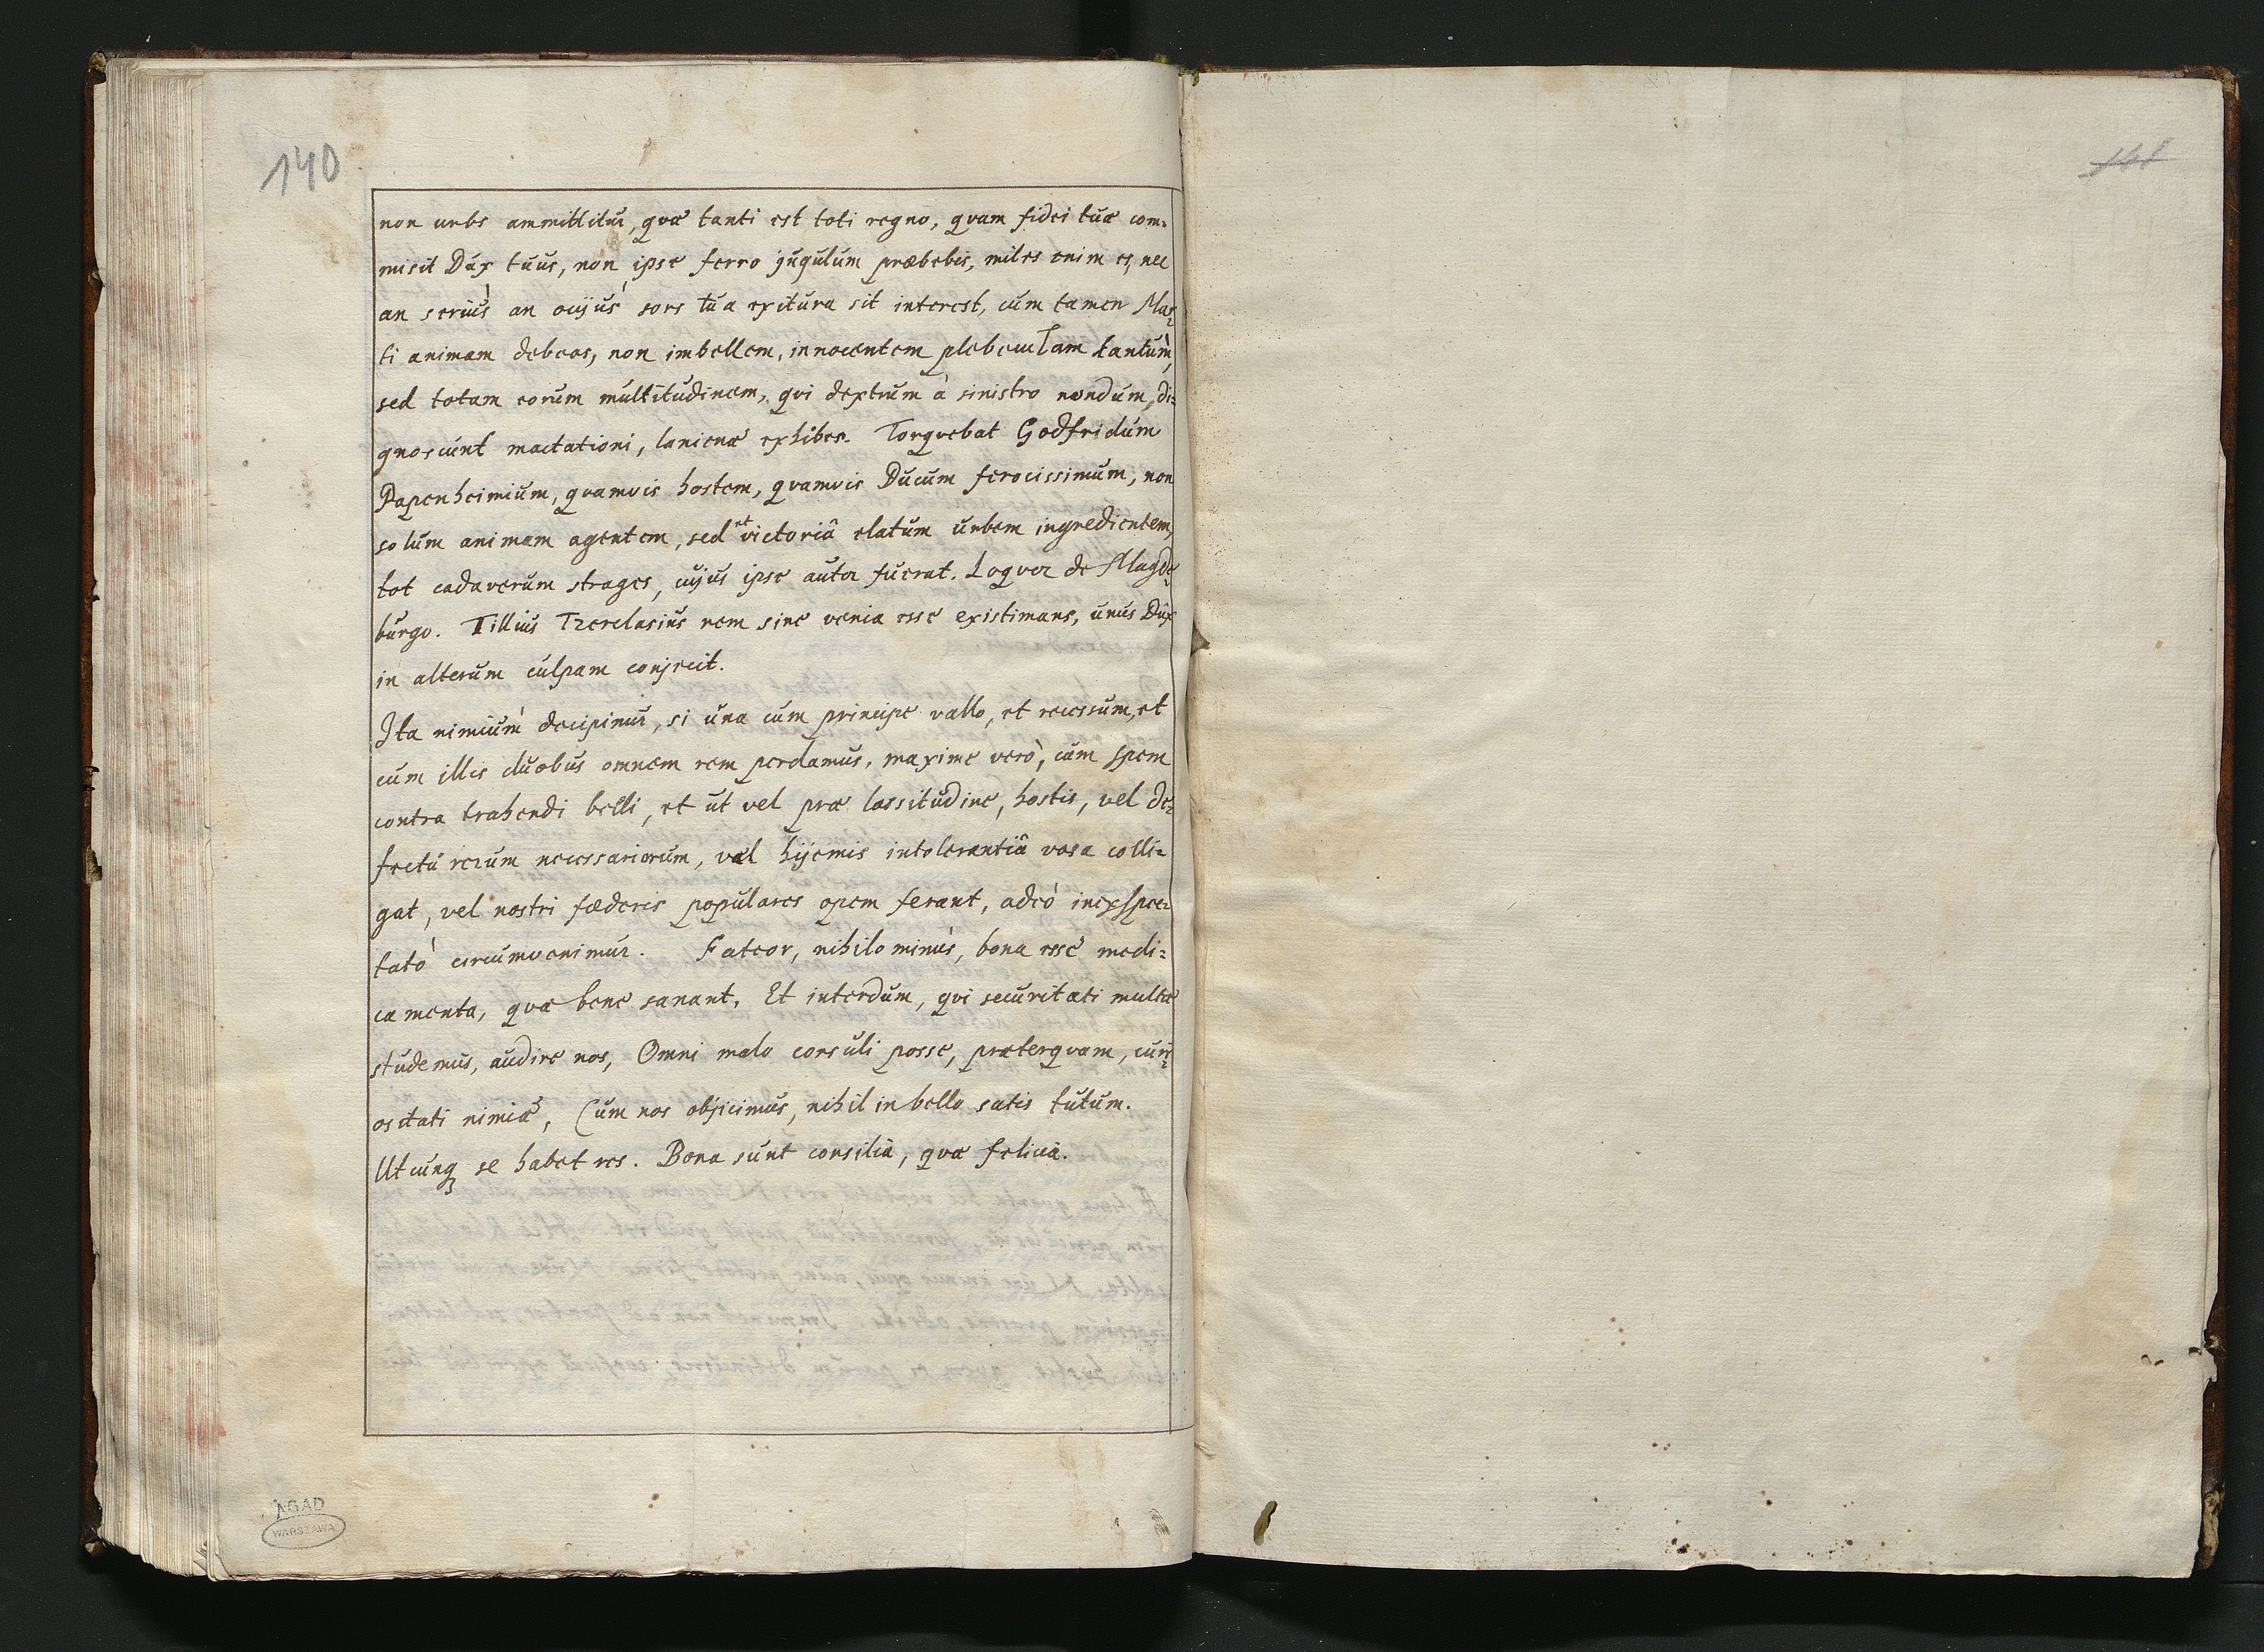 140
non urbs ammittitur, qvæ tanti est toti regno, qvam fidei tuæ com=
misit Dux tuus, non ipse ferro jugulum præbebis, miles enim es, nec
an seriùs an ocijùs sors tua exitura sit interest, cum tamen Mar=
ti animam debeas, non imbellem, innocentem plebeculam tantùm,
sed totam eorum multitudinem, qvi dextrum à sinistro nondum, di=
gnoscunt mactationi, lanienæ exhibes. Torqvebat Godfridum
Papenheimium, qvamvis hostem, qvamvis Ducum ferocissimum, non
solum animam agentem, sed et victoriâ elatum urbem ingredientem,
tot cadaverum strages, cujus ipse autor fuerat. Loqvor de Magde=
burgo. Tillius Tzerclasius rem sine venia esse existimans, unus Dux
in alterum culpam conjecit.
Ita nimiùm decipimur, si una cum principe vallo, et recessum, et
cum illis duobus omnem rem perdamus, maxime verò, cùm spem
contra trahendi belli, et ut vel præ lassitudine, hostis, vel de=
fectu rerum necessariorum, vel hijemis intolerantiâ vasa colli=
gat, vel nostri fœderis populares opem ferant, adeò inexspec=
tatò circumvenimur. Fateor, nihilominùs, bona esse medi=
camenta, qvæ bene sanant. Et interdum, qvi securitati multæ
studemus, audire nos, Omni malo consuli posse, præterqvam, curi=
ositati nimiæ, Cum nos objicimus, nihil in bello satis tutum.
Utcunq se habet res. Bona sunt consilia, qvæ felicia.
AGAD
WARSZAWA
141